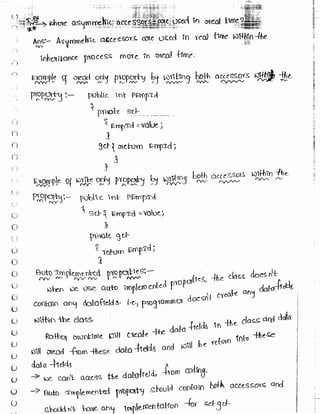 where asymmetric accessors are used in real time?
Ans:- Asymmetric accessors are used in real time within the
inheritance process more in real time.
Example of read only property by writing both accessors within the
property :- public int PEmpId
{
private set
{ EmpId = value ;
}
get { return EmpId ;
}
}
Example of write only property by writing both accessors within the
property:- public int PEmpId
{ Set { EmpId = value;
}
private get
{ return EmpId ;
}
Auto Implemented properties:-
When we use auto implemented properties, the class doesn't
contain any datafields. i.e, programmer doesn't create any datafields
within the class.
Rather, runtime will create the data fields in the class and data
will read from these data fields and will be return into these
data fields
-> we can't access the datafields, from coding.
-> Auto implemented property should contain both accessors and
shouldn't have any implementation for set get.